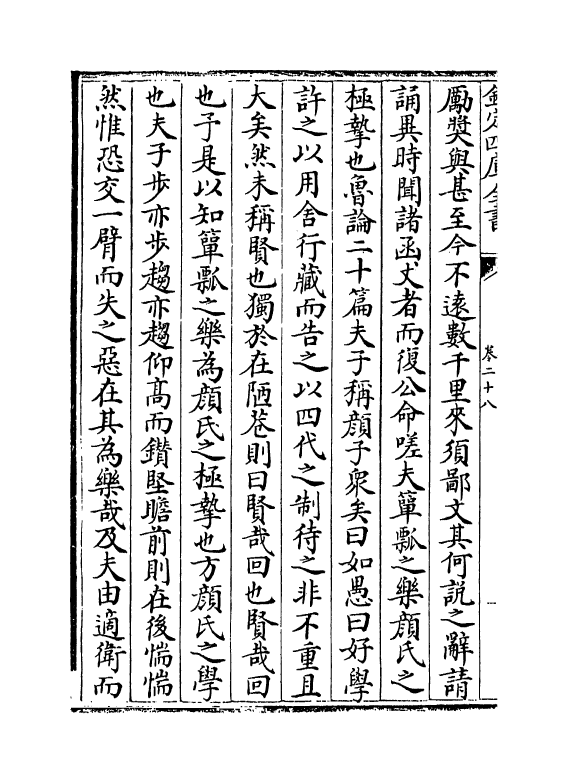 欽定四庫全書
卷二十八
勵奬與甚至今不逺數千里來須鄙文其何説之辭請
誦異時聞諸函丈者而復公命嗟夫簞瓢之樂顔氏之
極摯也魯論二十篇夫子稱顔子衆矣曰如愚曰好學
許之以用舍行藏而告之以四代之制待之非不重且
大矣然未稱賢也獨於在陋巷則曰賢哉回也賢哉回
也予是以知簞瓢之樂為顔氏之極摯也方顔氏之學
也夫子步亦步趨亦趨仰髙而鑚堅瞻前則在後惴惴
然惟恐交一臂而失之惡在其為樂哉及夫由適衛而